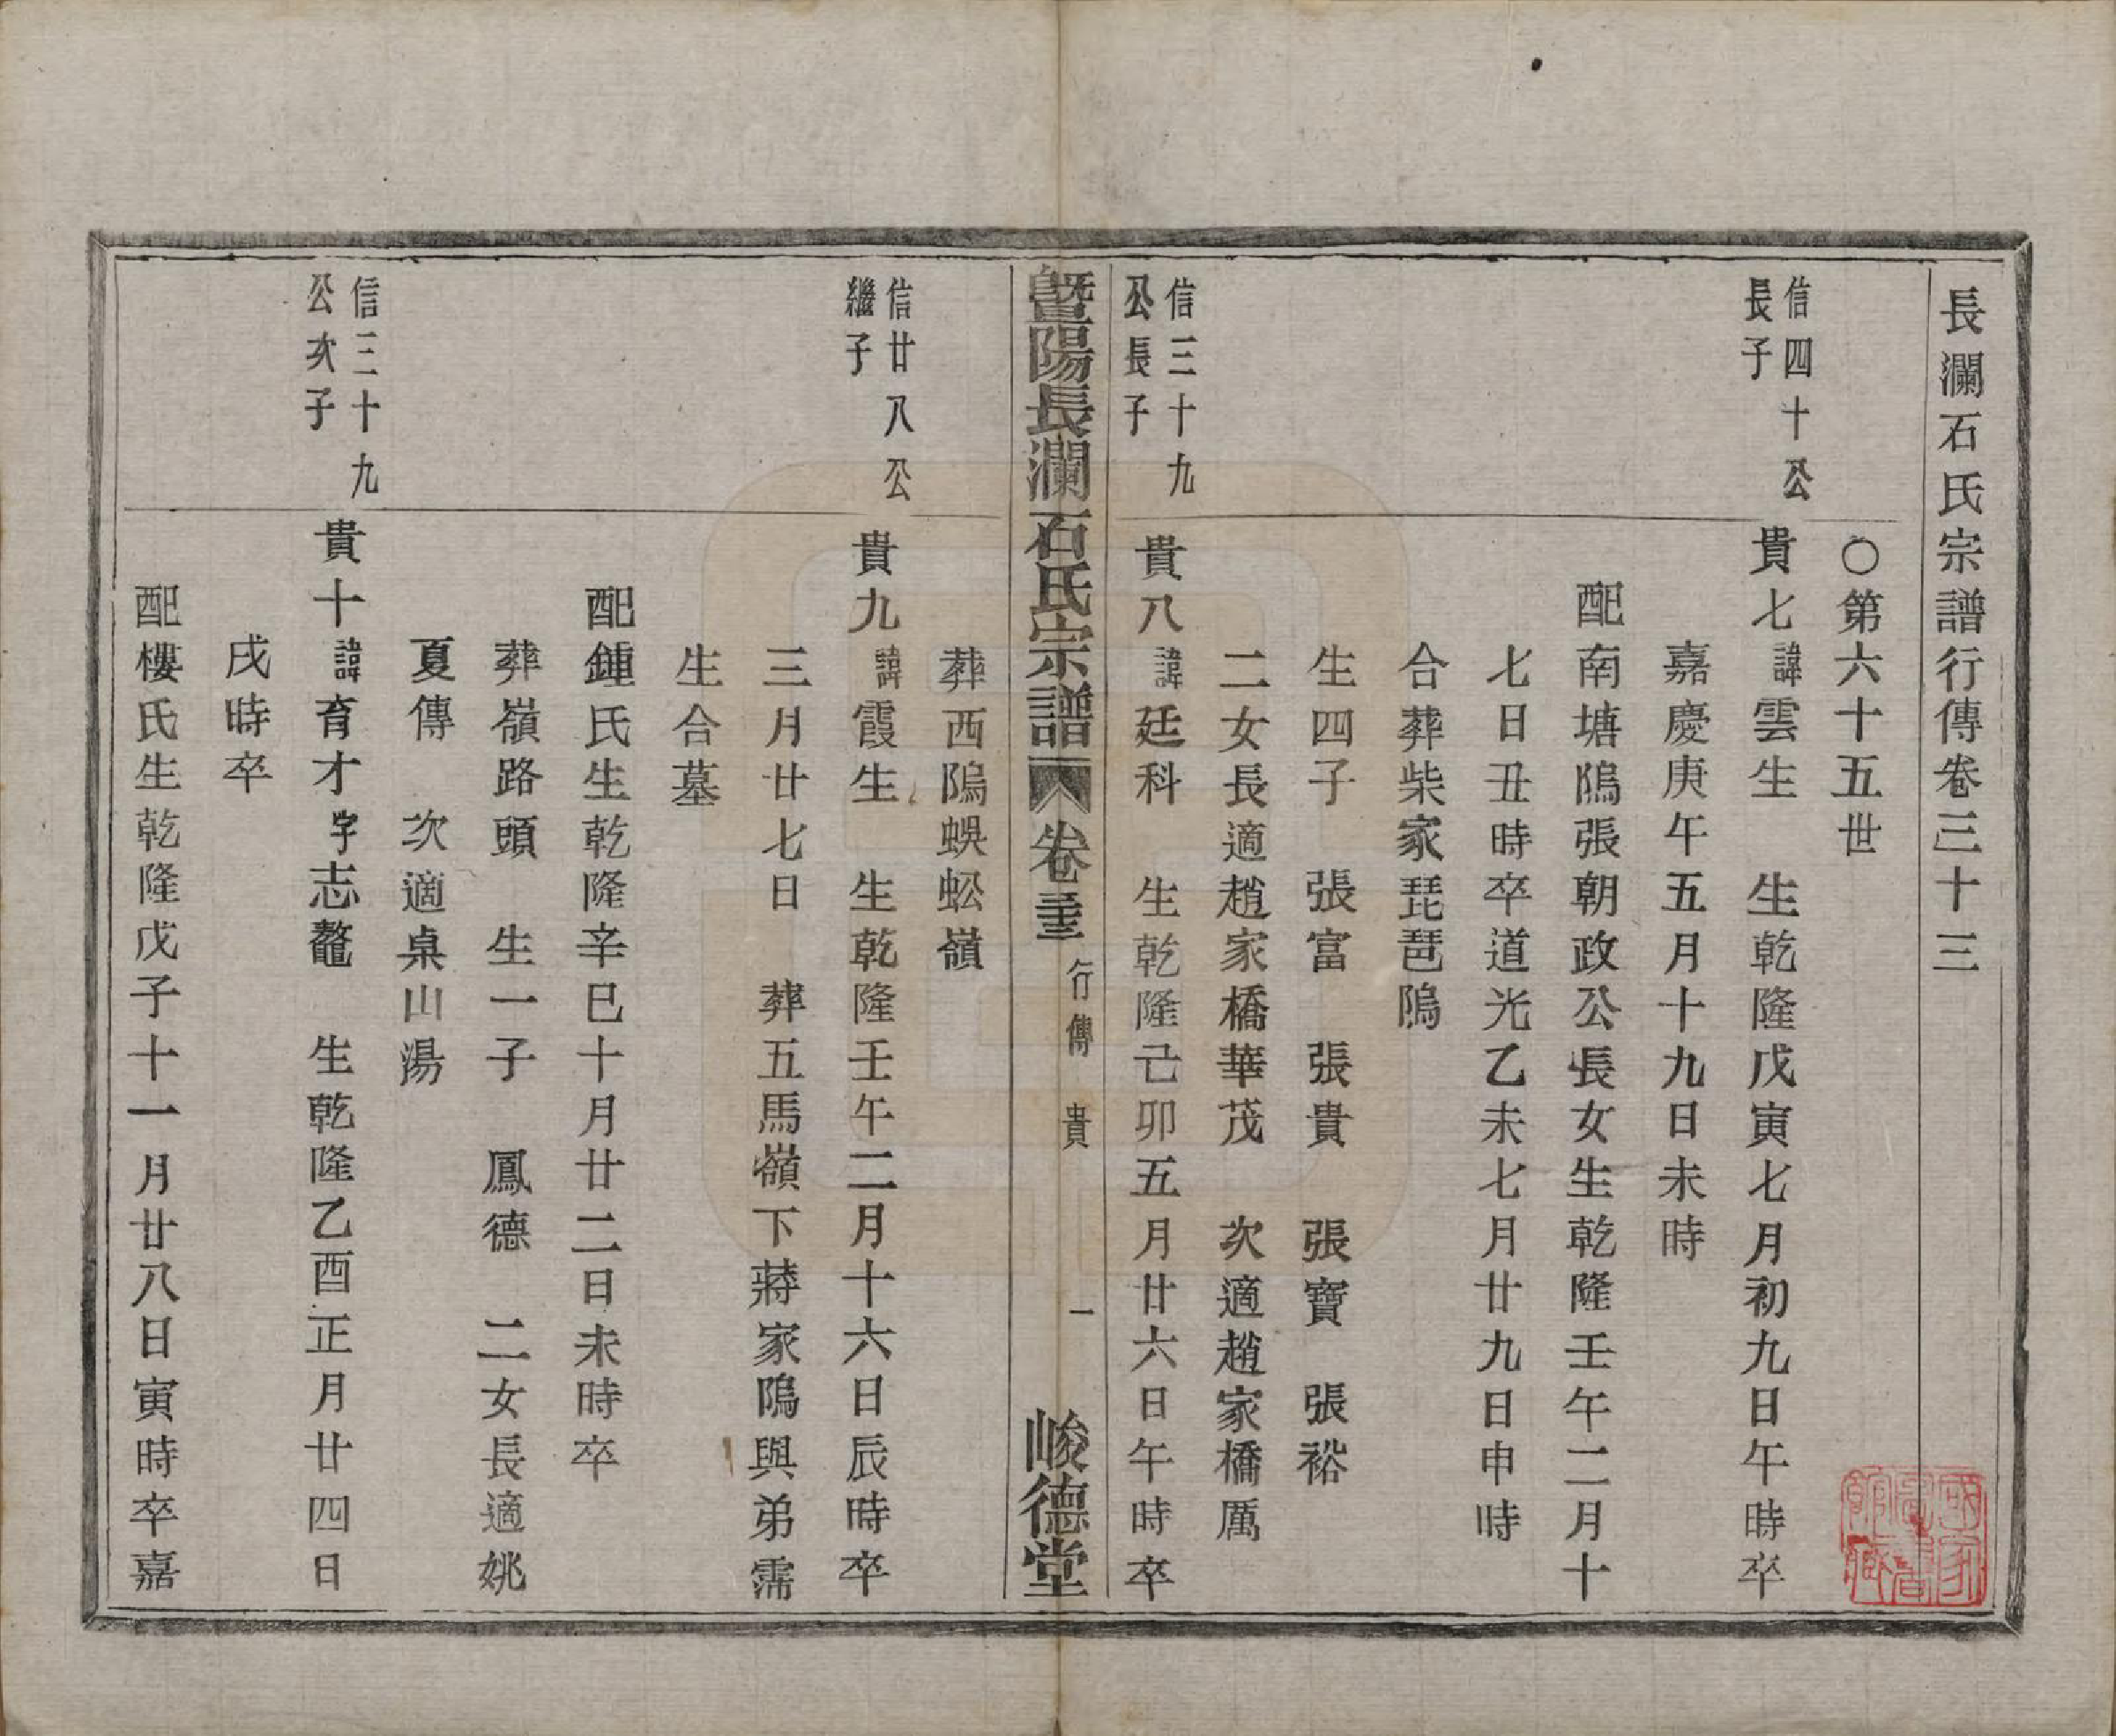 長瀾石氏宗譜行傳卷三十三
○第六十五世
信四十公
長子
貴七諱雲生　生乾隆戊寅七月初九日午時卒
嘉慶庚午五月十九日未時
配南塘隝張朝政公長女生乾隆壬午二月十
七日丑時卒道光乙未七月廿九日申時
合葬柴家琵琶隝
生四子　張富　張貴　張寶　張裕
二女長適趙家橋華茂　次適趙家橋厲
信三十九
公長子
貴八諱廷科　生乾隆己卯五月廿六日午時卒
暨陽長瀾石氏宗譜　卷三十三　行傳　貴　一　峻德堂
葬西隝蜈蚣嶺
信廿八公
繼子
貴九諱霞生　生乾隆壬午二月十六日辰時卒
三月廿七日　葬五馬嶺下蔣家隝與弟霈
生合墓
配鍾氏生乾隆辛巳十月廿二日未時卒
葬嶺路頭　生一子　鳳德　二女長適姚
夏傳　次適桌山湯
信三十九
公次子
貴十諱育才字志鼇　生乾隆乙酉正月廿四日
戌時卒
配樓氏生乾隆戊子十一月廿八日寅時卒嘉